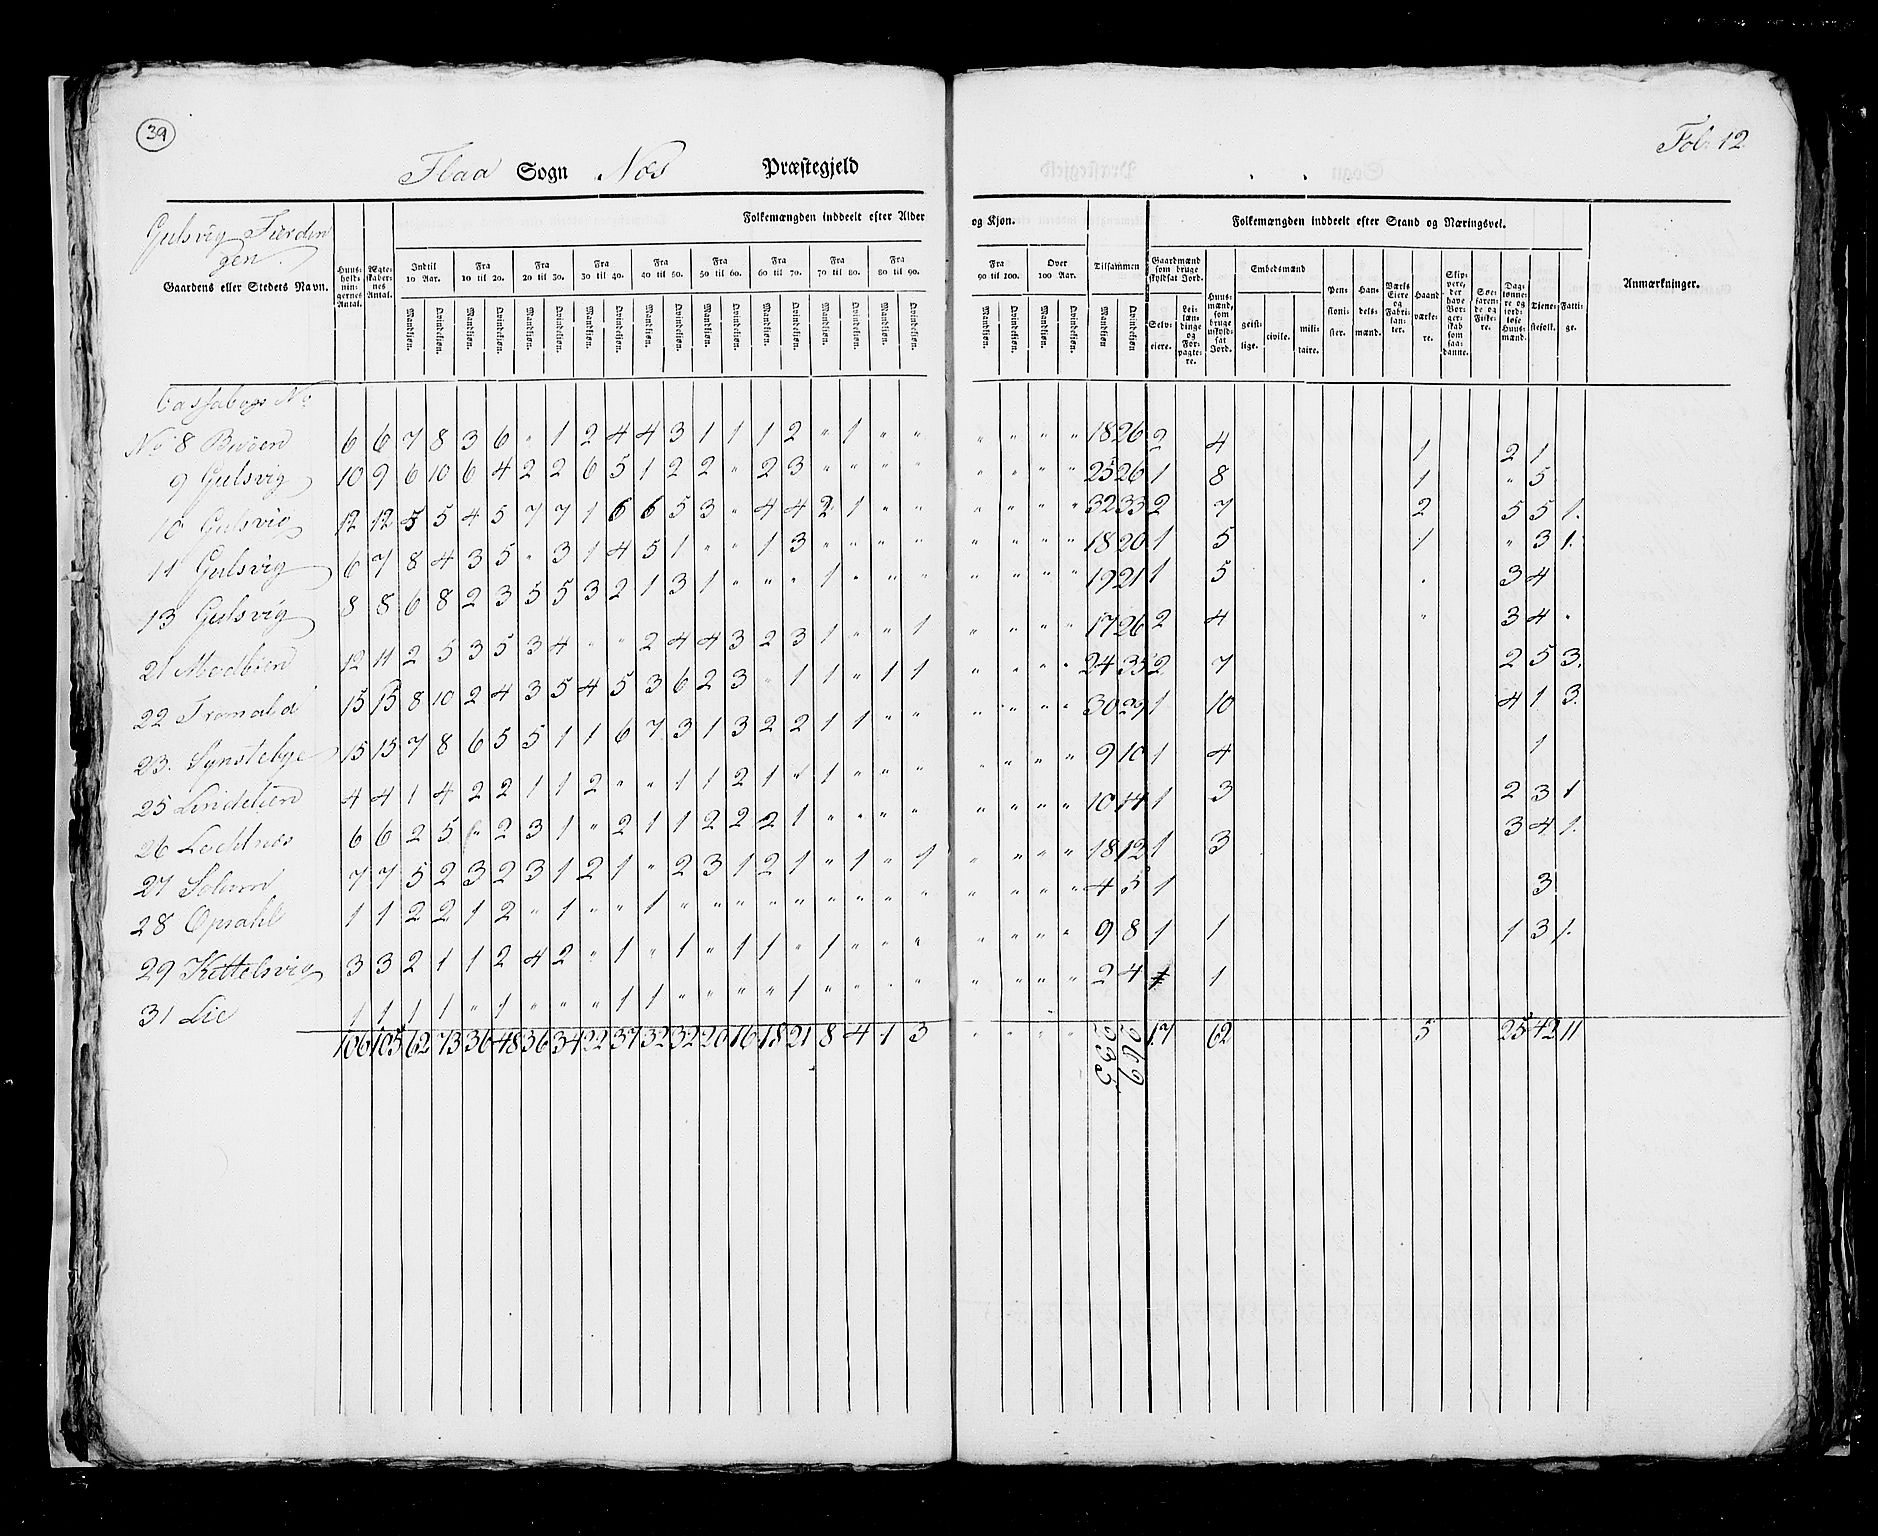 39
Fol. 12
Flaa Sogn Næs Præstegjeld
Gulsvig Fierdin
gen.
Gaardens eller Stedets Navn.
Huus-
hold-
nin-
gernes
Antal.
Ægte-
skaber-
nes
Antal.
Folkemængden inddeelt efter Alder og Kjøn.
Indtil 10 Aar. Fra 10 til 20. Fra 20 til 30. Fra 30 til 40. Fra 40 til 50. Fra 50 til 60. Fra 60 til 70. Fra 70 til 80. Fra 80 til 90. Fra 90 til 100. Over 100 Aar. Tilsammen
Mandkiøn. Qvindekiøn. Mandkiøn. Qvindekiøn. Mandkiøn. Qvindekiøn. Mandkiøn. Qvindekiøn. Mandkiøn. Qvindekiøn. Mandkiøn. Qvindekiøn. Mandkiøn. Qvindekiøn. Mandkiøn. Qvindekiøn. Mandkiøn. Qvindekiøn. Mandkiøn. Qvindekiøn. Mandkiøn. Qvindekiøn. Mandkiøn Qvindekiøn
Folkemængden inddeelt efter Stand og Næringsvei.
Gaardmænd som bruge skyldsat Jord.
Selv-
eiere.
Lei-
læn-
dinge
og
For-
pagte-
re.
Huus-
mænd,
som
bruge
uskyld-
sat
Jord.
Embedsmænd
geist-
lige.
civile.
mili-
taire.
Pen-
sioni-
ster.
Han-
dels-
mænd.
Værks
Eiere
og
Fabri-
kan-
ter.
Haand
værke-
re.
Skip-
pere,
der
have
Bor-
ger-
skab
som
saa-
danne.
Søe-
faren-
de og
Fiske-
re.
Dag-
lønne-
re og
jord-
løse
Huus-
mænd.
Tiene-
stefolk.
Fatti-
ge.
Anmærkninger.
No 8 6 6 7 8 3 6 " 1 2 4 4 3 1 1 1 2 " 1 " " " " " " 18 26 2 4 1 2 1
9 Gulsvig 10 9 6 10 6 4 2 2 6 5 1 2 2 " 2 3 " " " " " " " " 25 26 1 8 1 " 5
10 Gulsvig 12 12 5 5 4 5 7 7 1 6 6 5 3 " 4 4 2 1 " " " " " " 32 33 2 7 2 5 5 1.
11 Gulsvig 6 7 8 4 3 5 " 3 1 4 5 1 " " 1 3 " " " " " " " " 18 20 1 5 1 " 3 1.
13 Gulsvig 8 8 6 8 2 3 5 5 3 2 1 3 1 " " " 1 " " " " " " " 19 21 1 5 " 3 4
21 12 11 2 5 3 5 3 4 " " 2 4 4 3 2 3 1 " " 1 " " " " 17 26 2 4 " 3 4 "
22 15 15 8 10 2 4 3 5 4 5 3 6 2 3 " 1 1 " 1 1 " " " " 24 35 2 7 2 5 3.
23. Synstebye 15 15 7 8 6 5 5 1 1 6 7 3 1 3 2 2 1 1 " " " " " " 30 29 1 10 4 1 3.
25 Lindelien 4 4 1 4 2 2 1 1 2 " " 1 1 2 1 " 1 " " " " " " " 9 10 1 4 1
26 6 6 2 5 " 2 3 1 " 2 1 1 2 2 2 1 " " " " " " " " 10 14 1 3 2 3 1
27 Solum 7 7 5 2 3 2 3 1 2 1 " 2 3 1 2 1 " 1 " 1 " " " " 18 12 1 3 3 4 1.
28 Opsahl 1 1 2 2 1 2 " 1 " " 1 " " " " " " " " " " " " " 4 5 1 3
29 Kittelsvig 3 3 2 1 1 2 4 2 " 1 " 1 " 1 1 " 1 " " " " " " " 9 8 1 1 1 3 1.
31 Lie 1 1 1 1 " 1 " " " 1 1 " " " " 1 " " " " " " " " 2 4 1 1
106 105 62 73 36 48 36 34 22 37 32 32 20 16 18 21 8 4 1 3 " " " " 235 269 17 62 5 25 42 11